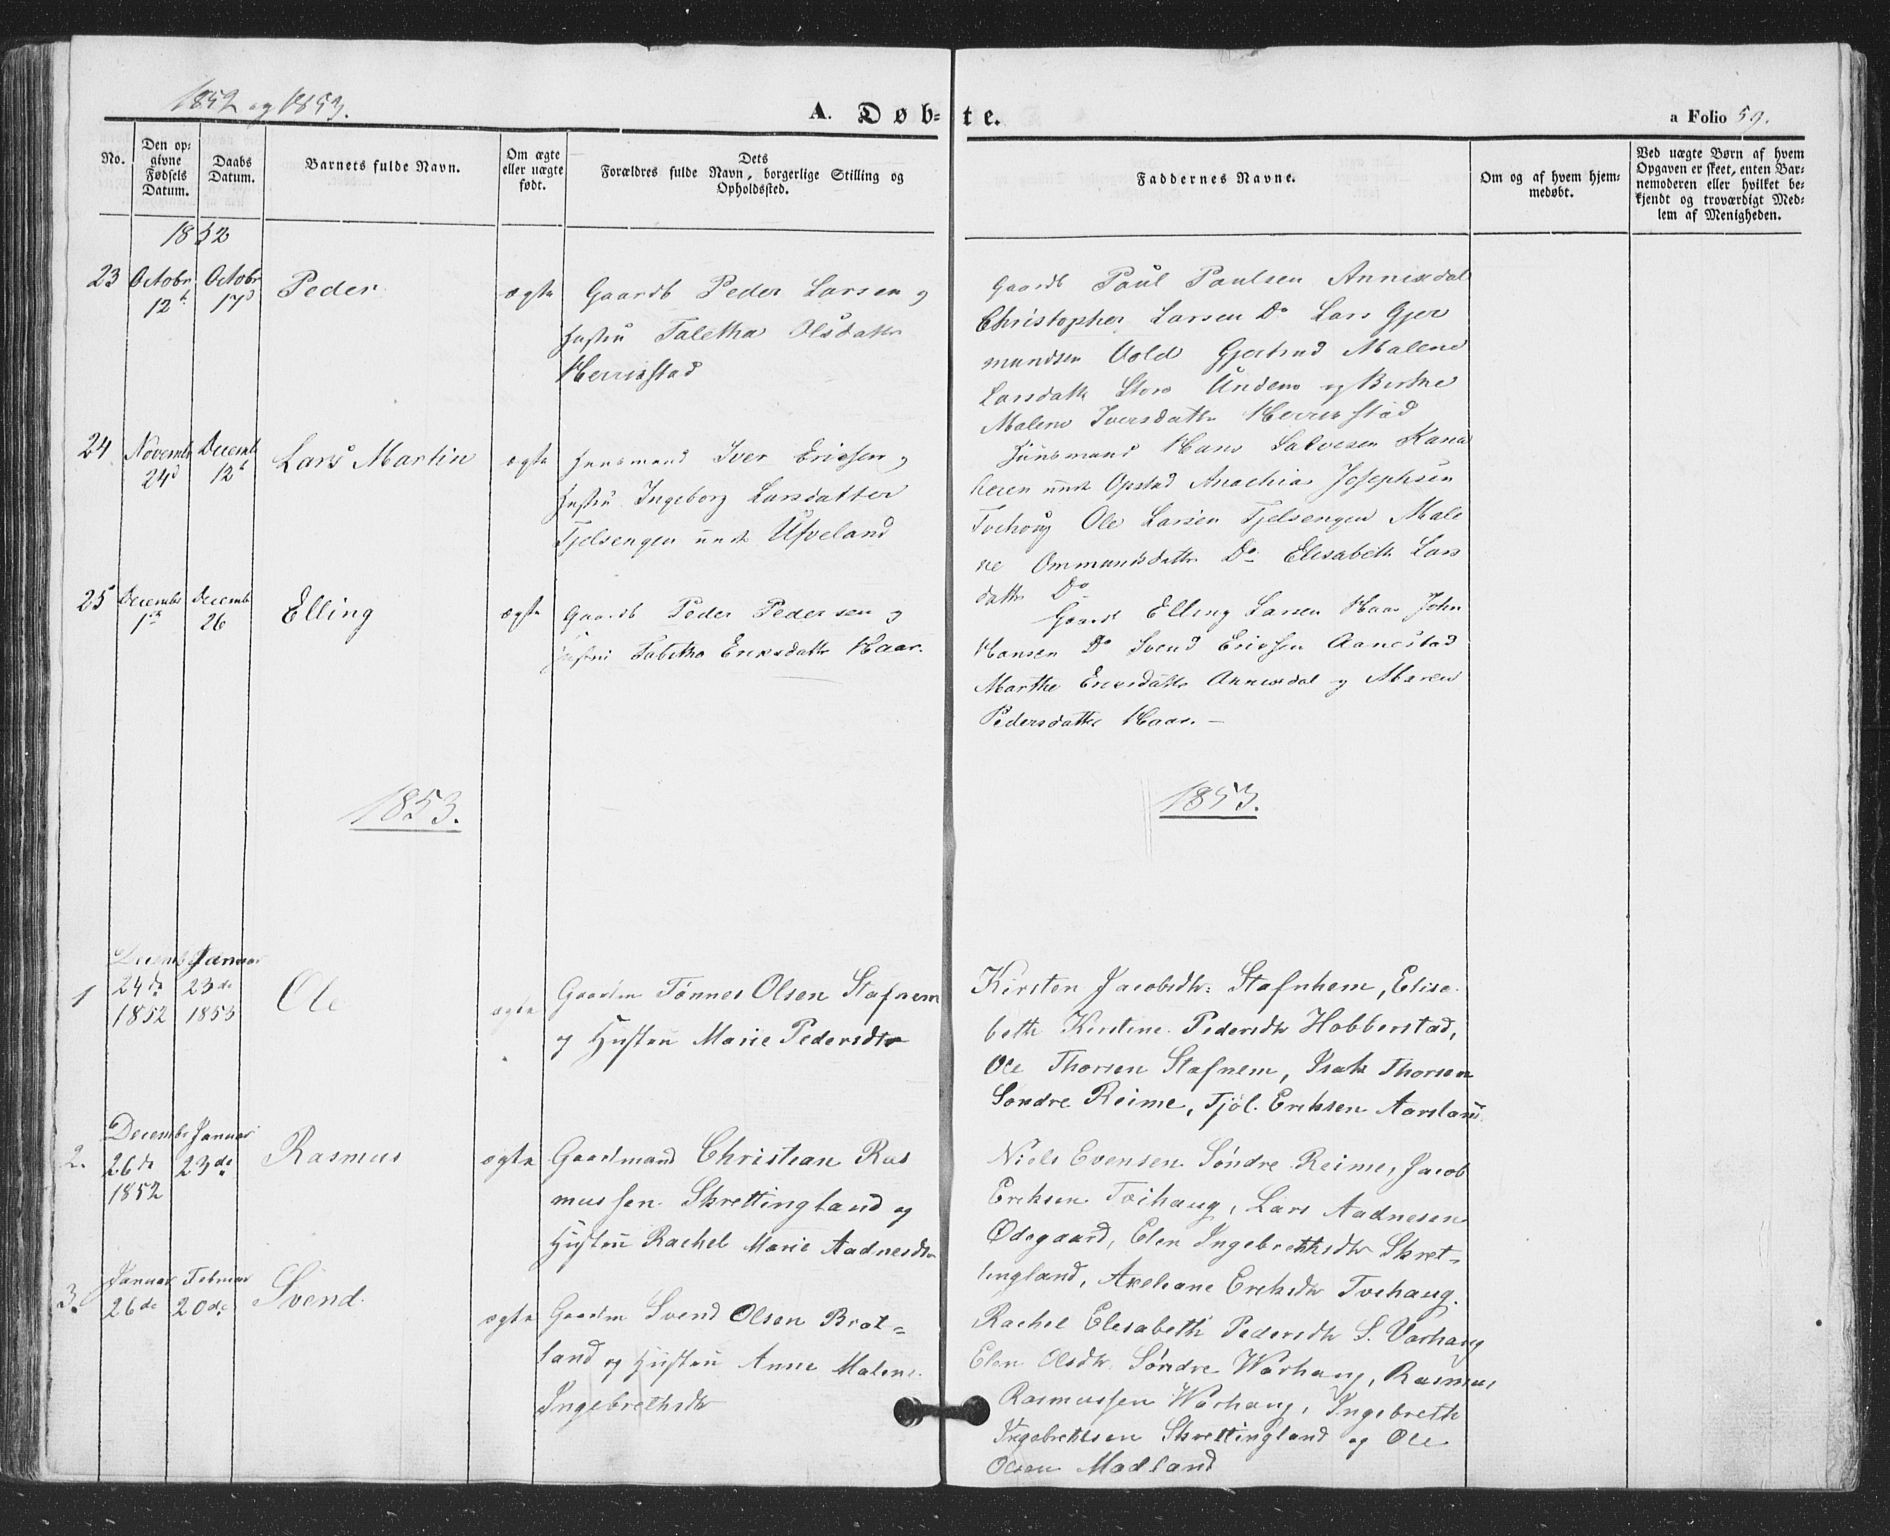 1852 og 1853.
A. Døbte.
a Folio 59.
No.
Den op-
givne
Fødsels
Datum.
Daabs
Datum.
Barnets fulde Navn.
Om ægte
eller uægte
født.
Dets
Forældres fulde Navn, borgerlige Stilling og
Opholdssted.
Faddernes Navne.
Om og af hvem hjem-
medøbt.
Ved uægte Børn af hvem
Opgaven er skeet, enten Bar-
nemoderen eller hvilket be-
kjendt og troværdigt Med-
lem af Menigheden.
1852
23 Octobr 12t Octobr 17d Peder ægte
Gaardb Peder Larsen og
Hustru Taletha Olsdattr
Herrestad
Gaardb Paul Paulsen Annisdal
Christopher Larsen Do Lars Gjer
mundsen Vold Gjertrud Malene
Larsdattr Store Undem og Berthe
Malene Iversdattr Herrestad
24 Novembr 24d Decembr 12t Lars Martin ægte
Huusmand Iver Ericsen og
Hustru Ingeborg Larsdatter
Tjelsengen undr Ufveland
Huusmand Hans Salvesen Kana
heien undr Opstad Anachias Josephsen
Tvehoug Ole Larsen Tjelsengen Male
ne Ommundsdattr Do Elisabeth Lars
dattr Do
25 Decembr 1ste Decembr 26 Elling ægte
Gaardb Peder Pedersen og
Hustru Tabitha Ericsdattr Haar.
Gaardb Elling Larsen Haar John
Hansen Do Svend Ericsen Aanestad
Marthe Ericsdattr Annisdal og Maren
Pedersdatter Haar. –
1853.
1853.
1 Decemb 24de 1852 Januar 23de 1853 Ole ægte
Gaardm Tønnes Olsen Stafnem
og Hustru Marie Pedersdtr
Kirsten Jacobsdtr: Stafnhem, Elisa-
beth Kirstine Pedersdtr Hobberstad,
Ole Thorsen Stafnem, Isak Thorsen
Søndre Reime, Tjøl. Eriksen Aarsland
2. Decembr 26de 1852 Januar 23de Rasmus ægte
Gaardmand Christian Ras
mussen Skrettingland og
Hustru Rachel Marie Aadnesdtr
Niels Evensen Søndre Reime, Jacob
Eriksen Tvihaug, Lars Aadnesen
Ødegaard, Elen Ingebrethsdtr Skret-
tingland, Axeliane Eriksdtr Tvihaug.
3. Januar 26de Februar 20de Svend. ægte
Gaardm Svend Olsen Brat-
land og Hustru Anne Malene
Ingebrethsdtr
Rachel Elisabeth Pedersdtr S. Varhaug
Elen Olsdtr. Søndre Warhaug, Rasmus
Rasmussen Warhaug, Ingebreth
Ingebrethsen Skrettingland og Ole
Olsen Madland